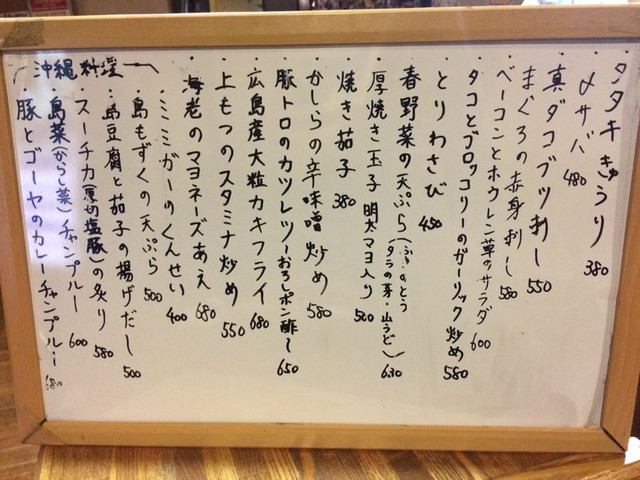 ・タタキきゅうり 380
・〆サバ 480
・真ダコブツ刺し 550
・まぐろの赤身刺し 580
・ベーコンとホウレン草のサラダ 600
・タコとブロッコリーのガーリック炒め 580
・とりわさび 450
・春野菜の天ぷら(ふきのとう・タラの芽・山うど) 630
・厚焼き玉子 明太マヨ入り 500
・焼き茄子 380
・かしらの辛味噌炒め 580
・豚トロのカツレツ〜おろしポン酢〜 650
・広島産大粒カキフライ 680
・上もつのスタミナ炒め 550
・海老のマヨネーズあえ 680
沖縄料理
・ミミガーのくんせい 400
・島もずくの天ぷら 500
・島豆腐と茄子の揚げだし 500
・スーチカ(厚切塩豚)の炙り 580
・島菜(からし菜)チャンプルー 600
・豚とゴーヤのカレーチャンプルー 680